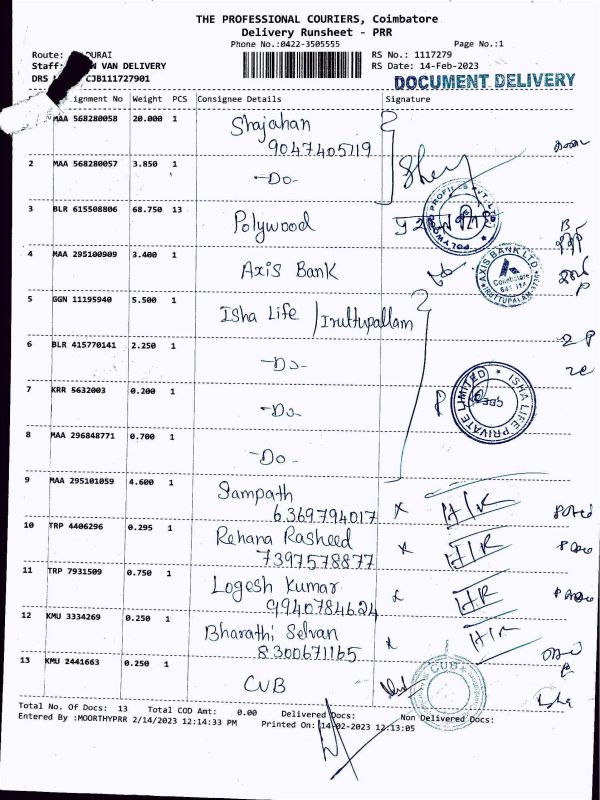 THE PROFESSIONAL COURIERS, Coimbatore
Delivery Runsheet - PRR
Phone No.:0422-3505555 Page No.:1
Route: DURAI RS No.: 1117279
Staff: VAN DELIVERY RS Date: 14-Feb-2023
DRS CJB111727901 DOCUMENT DELIVERY
ignment No Weight PCS Consignee Details Signature
MAA 568280058 20.000 1 Shajahan
9047405119
2 MAA 568280057 3.850 1 -Do-
3 BLR 615508806 68.750 13 Polywood
4 MAA 295100909 3.400 1 Axis Bank
AXIS BANK LTD.
Coimbatore
5 GGN 11195940 5.500 1 Isha Life / Iruttupallam
6 BLR 415770141 2.250 1 -Do-
7 KRR 5632003 0.200 1 -Do-
ISHA LIFE PRIVATE LIMITED
CBE
8 MAA 296848771 0.700 1 -Do-
9 MAA 295101059 4.600 1 Sampath
6369794017
10 TRP 4406296 0.295 1 Rehana Rasheed
7397578877
11 TRP 7931509 0.750 1 Logesh Kumar
9940784624
12 KMU 3334269 0.250 1 Bharathi Selvan
8300671165
13 KMU 2441663 0.250 1 CUB
CUB
Total No. Of Docs: 13 Total COD Amt: 0.00 Delivered Docs: Non Delivered Docs:
Entered By :MOORTHYPRR 2/14/2023 12:14:33 PM Printed On: 14-02-2023 12:13:05